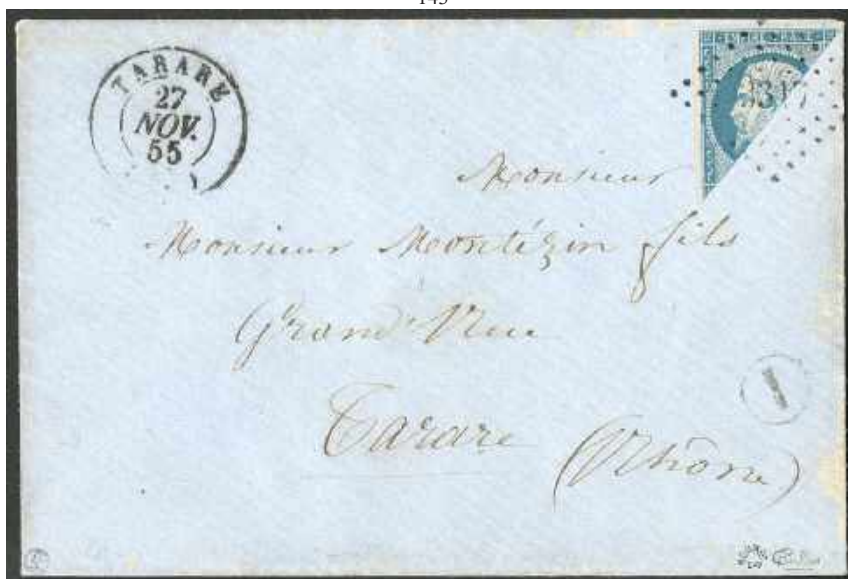 145
TARARE
27
NOV.
55
Monsieur
Monsieur Montézin fils
Grand'Rue
Tarare
(Rhône)